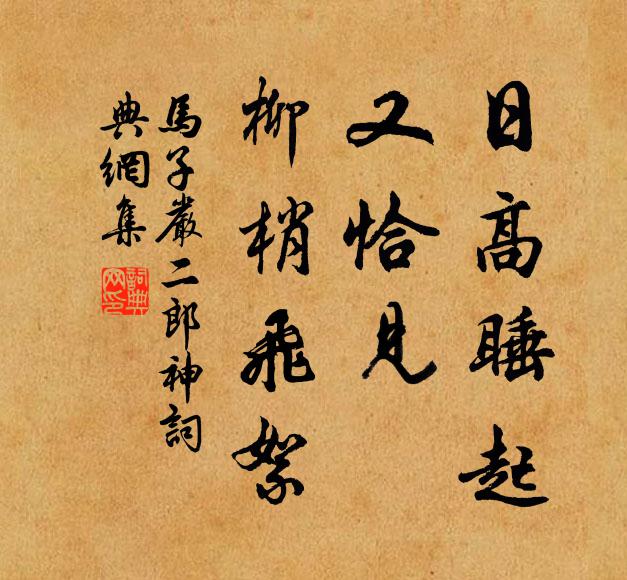 日高睡起
又恰見
柳梢飛絮
馬子嚴二郎神詞
典網集
詞典網印